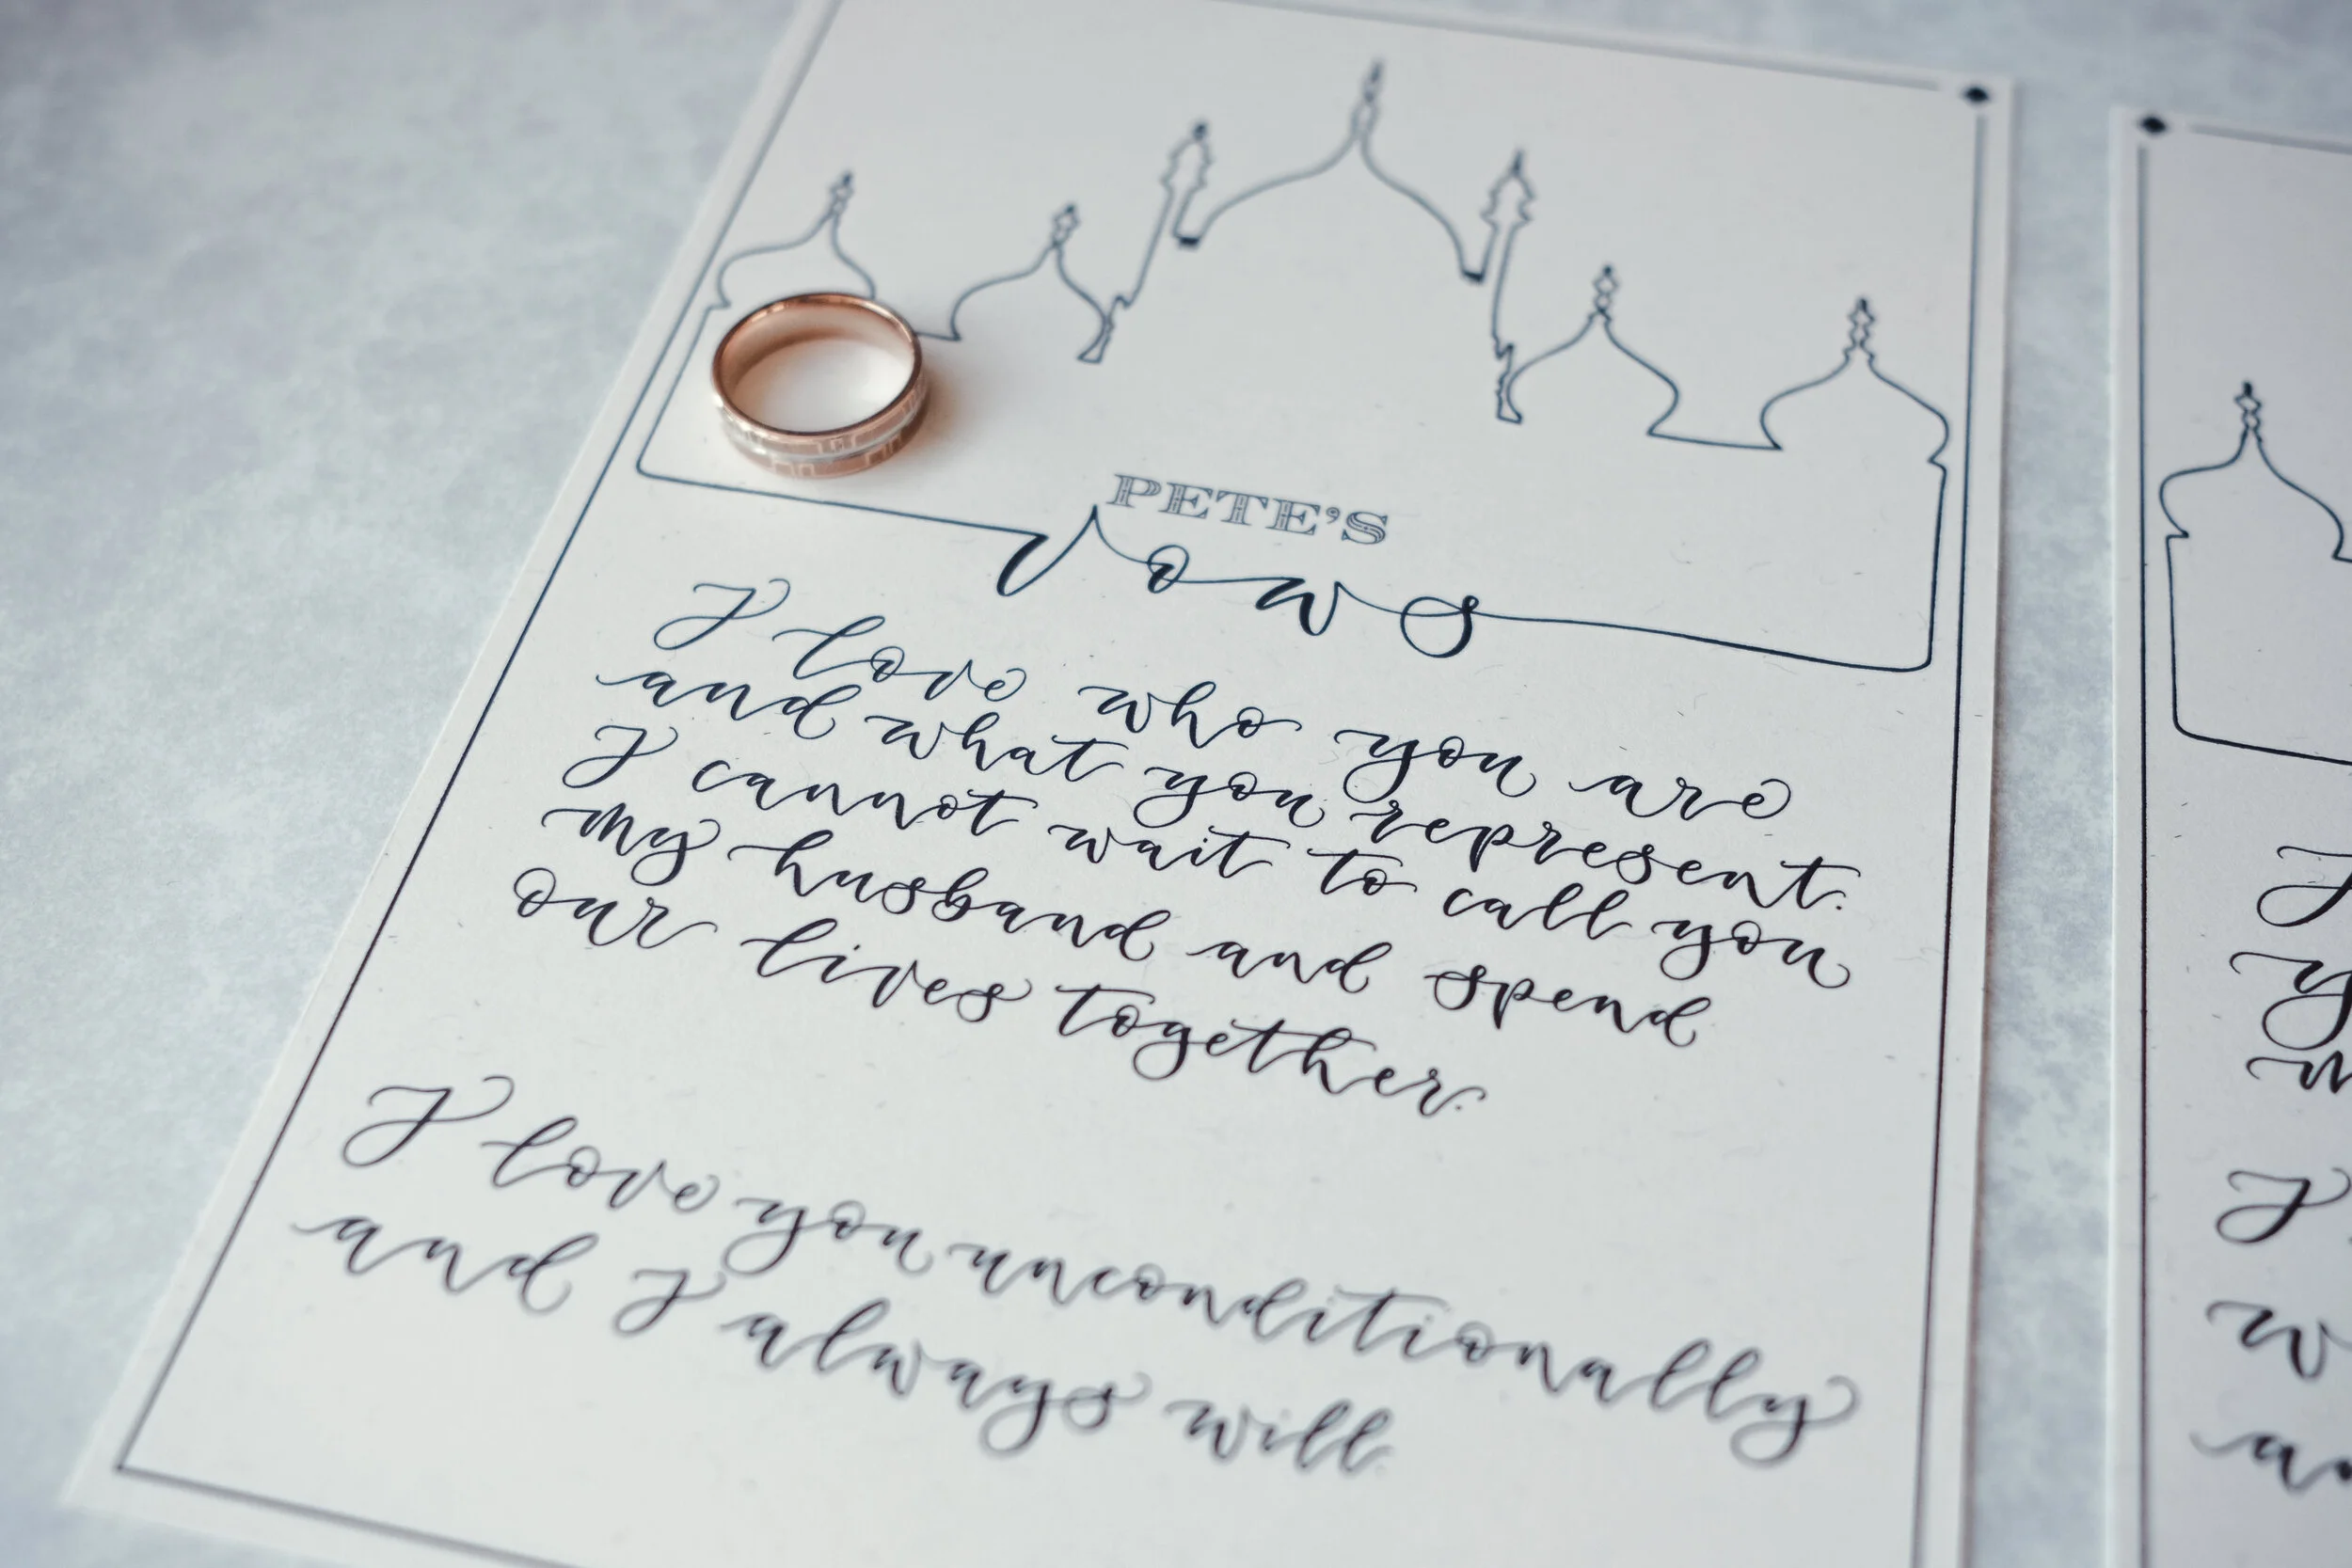 PETE'S
vows
I love who you are
and what you represent.
I cannot wait to call you
my husband and spend
our lives together.
I love you unconditionally
and I always will.